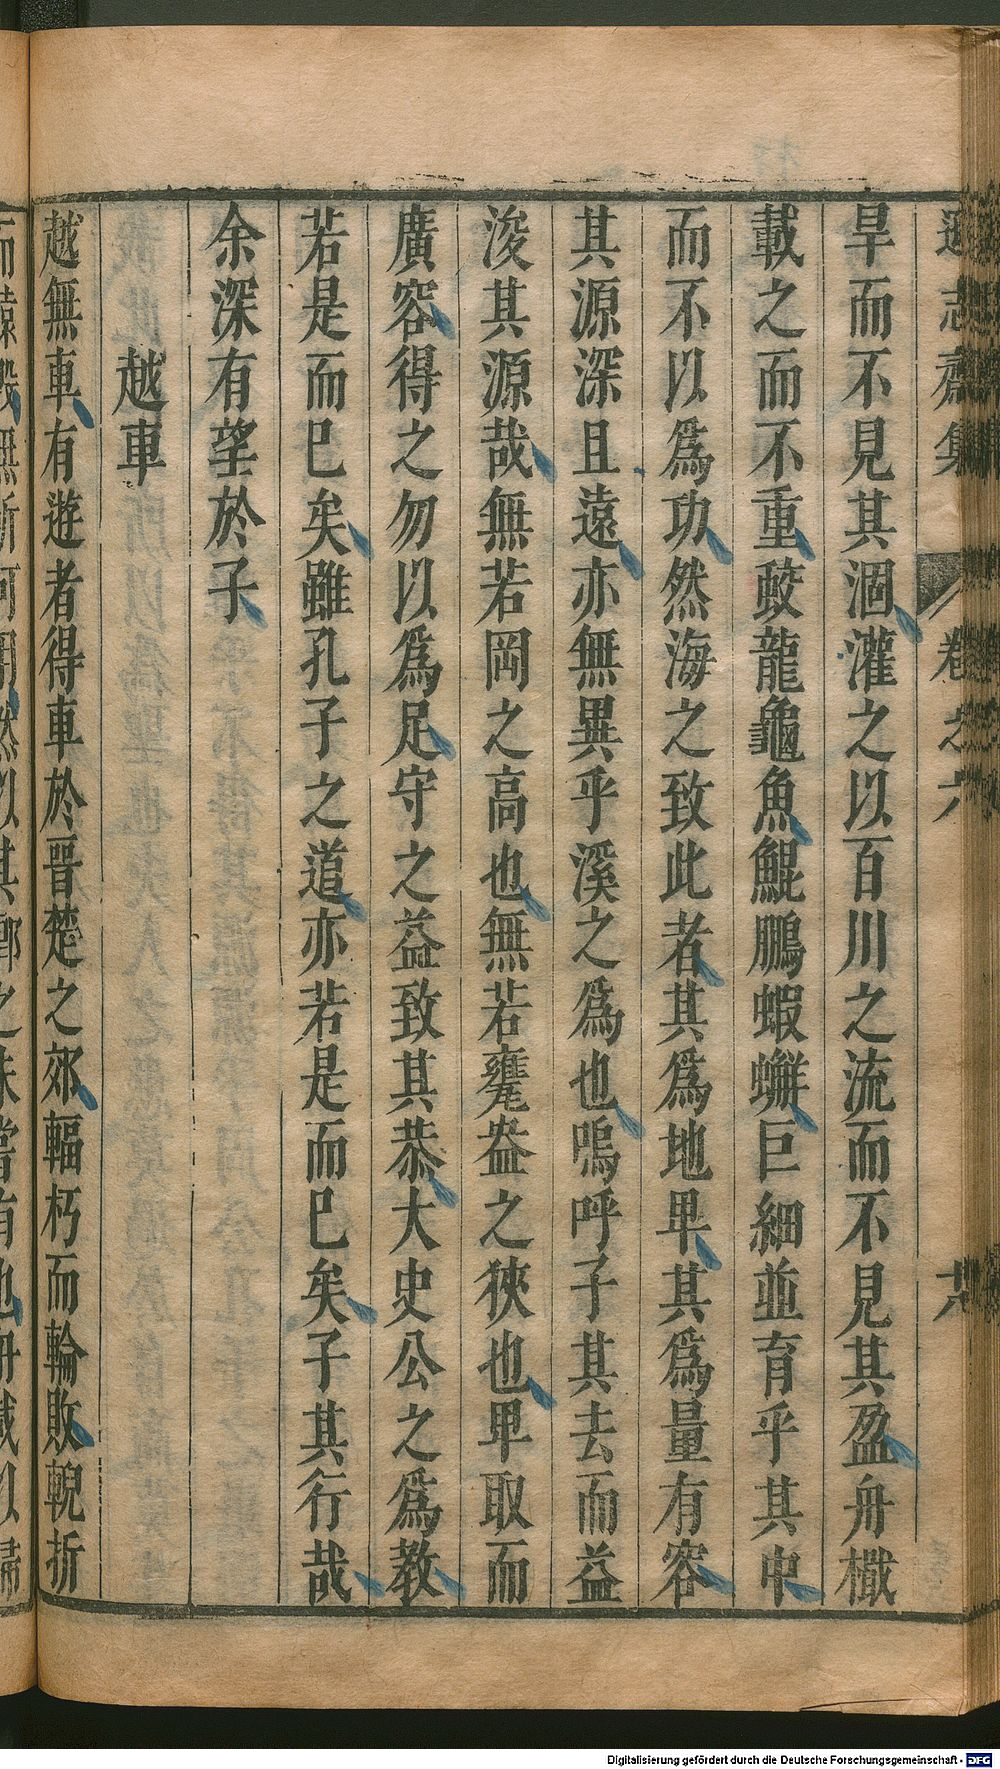 遜志齋集 卷之六
旱而不見其涸灌之以百川之流而不見其盈舟檝
載之而不重鼓龍龜魚鯤鵬蝦蠏巨細並育乎其中
而不以爲功然海之致此者其爲地卑其爲量有容
其源深且遠亦無異乎溪之爲也嗚呼子其去而益
浚其源哉無若岡之高也無若甕盎之狹也卑取而
廣容得之勿以爲足守之益致其恭大史公之爲教
若是而巳矣雖孔子之道亦若是而巳矣子其行哉
余深有望於子
越車
越無車有遊者得車於晋楚之郊輻朽而輪敗輗折
Digitalisierung gefördert durch die Deutsche Forschungsgemeinschaft - DFG